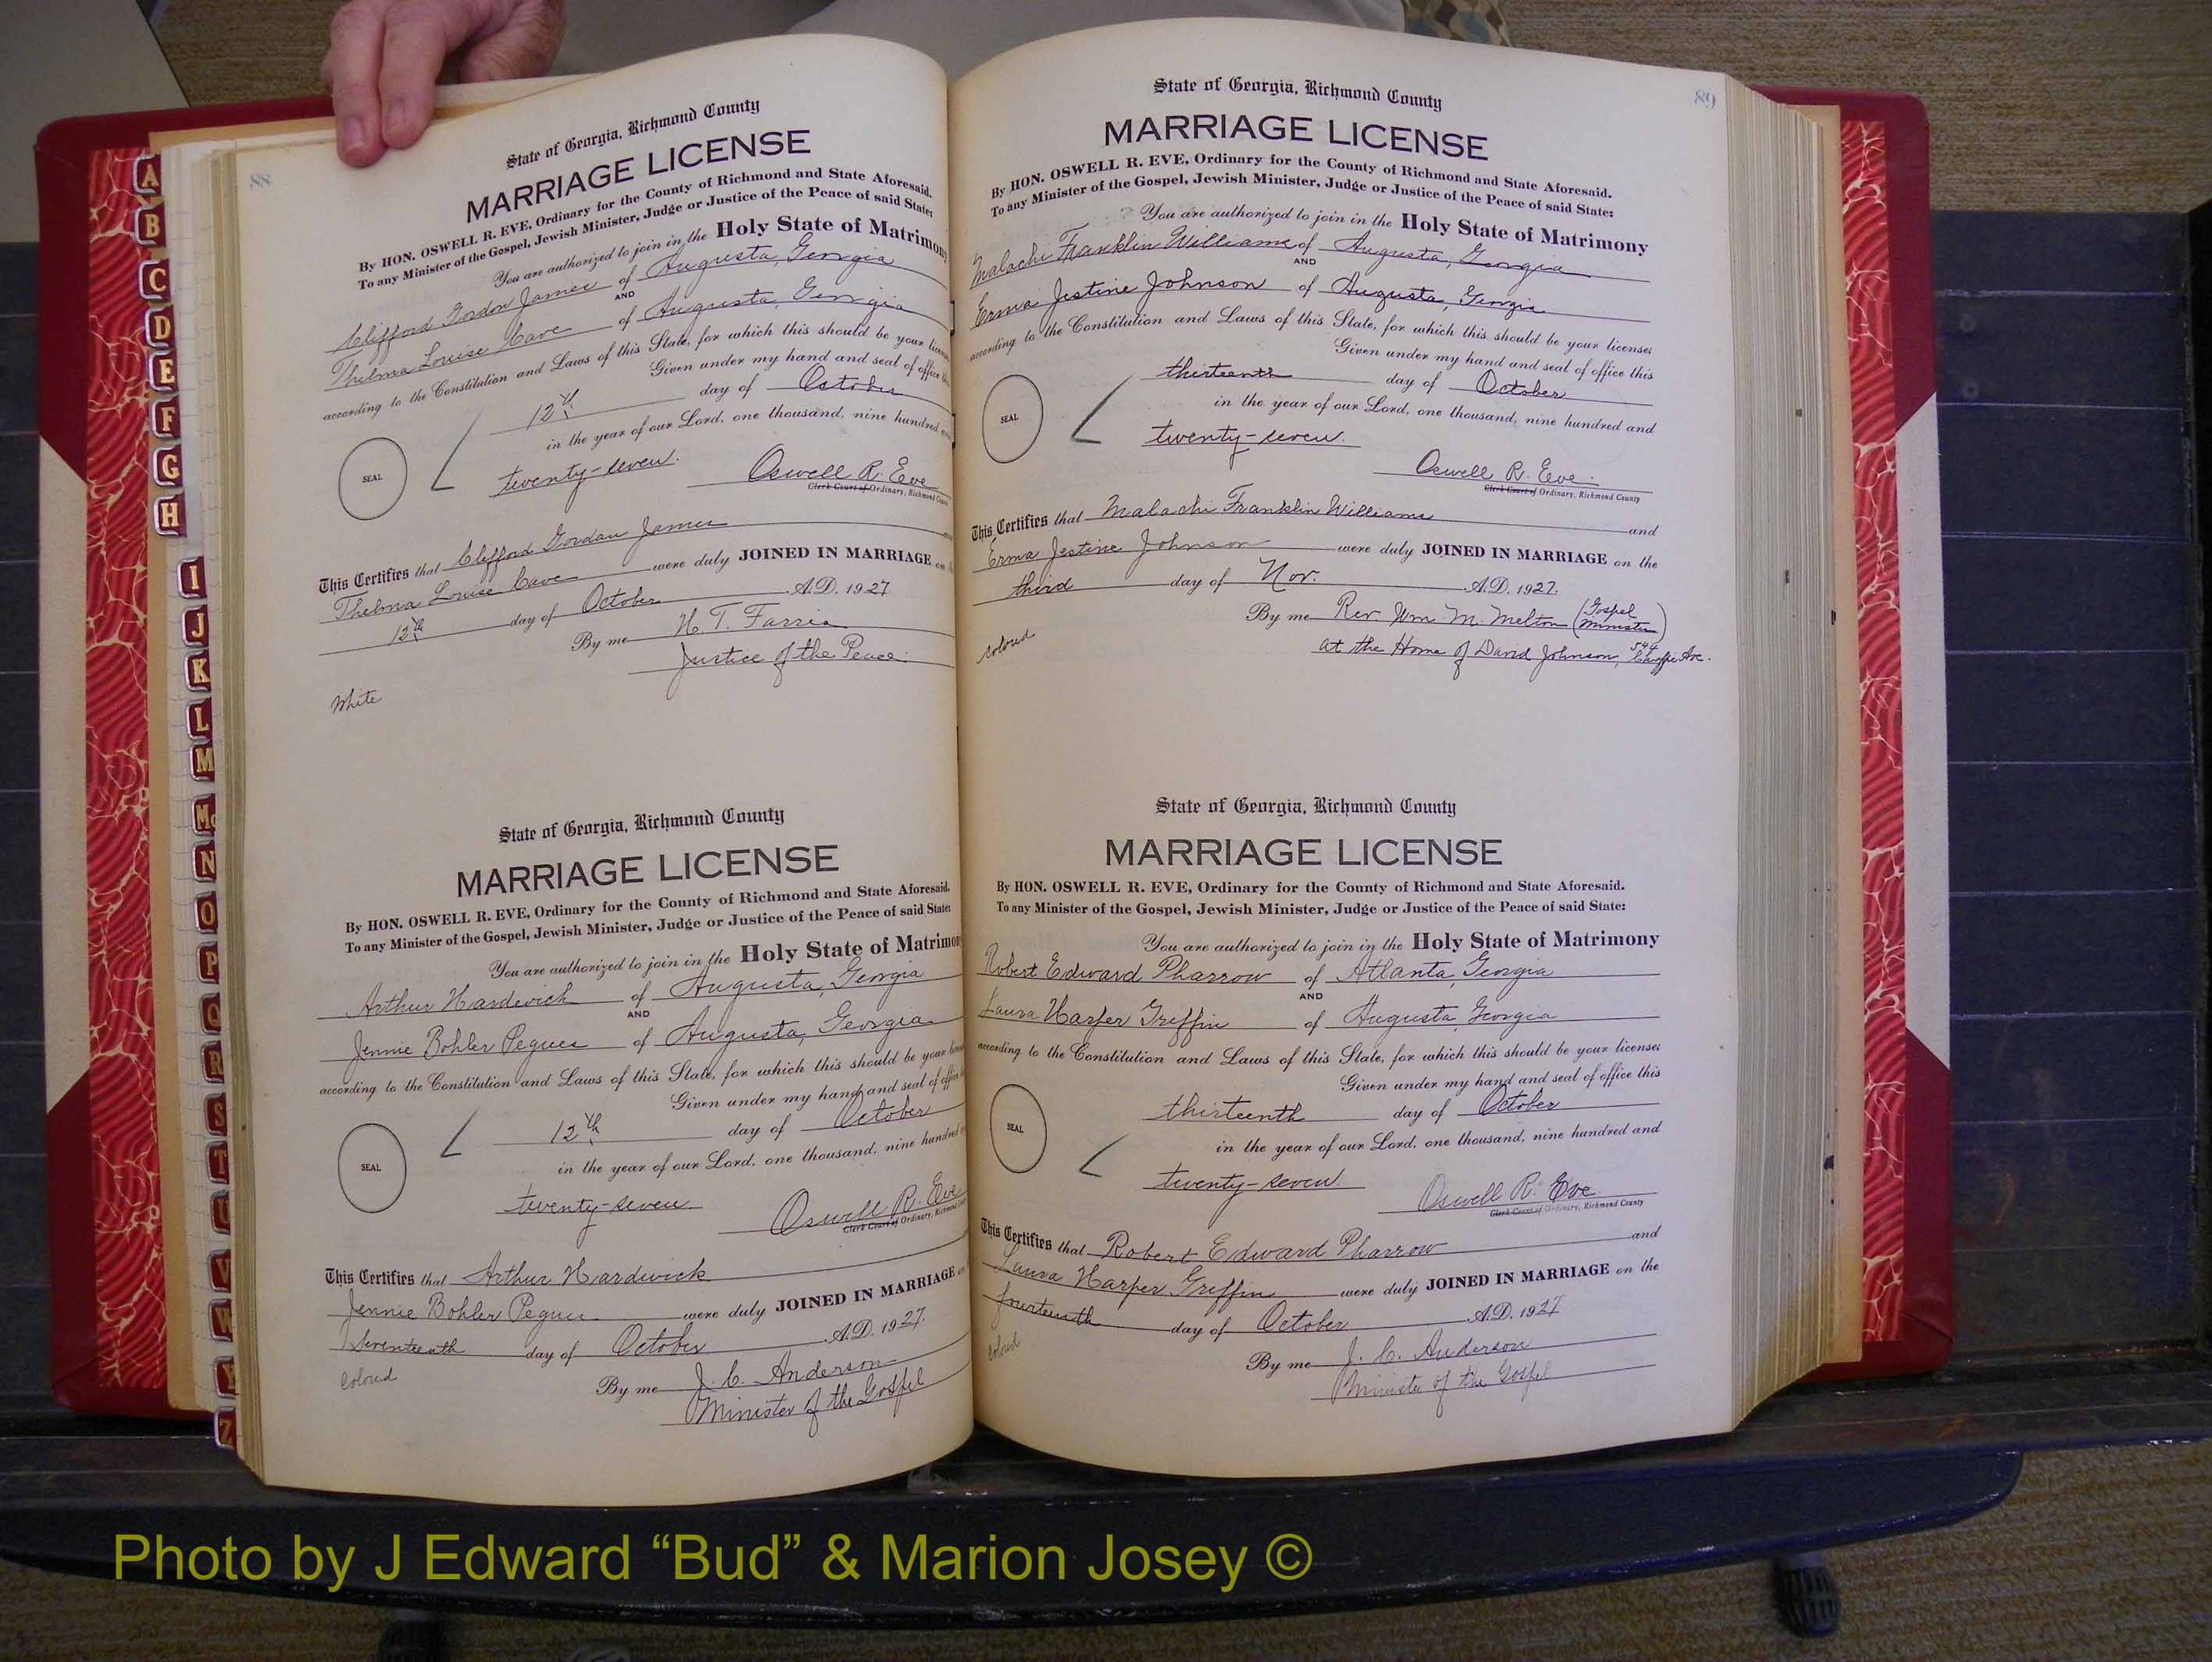 88
State of Georgia, Richmond County
MARRIAGE LICENSE
By HON. OSWELL R. EVE, Ordinary for the County of Richmond and State Aforesaid.
To any Minister of the Gospel, Jewish Minister, Judge or Justice of the Peace of said State:
You are authorized to join in the Holy State of Matrimony
Clifford Gordon James of Augusta, Georgia
AND
Thelma Louise Cave of Augusta, Georgia
according to the Constitution and Laws of this State, for which this should be your license
Given under my hand and seal of office
12th day of October
in the year of our Lord, one thousand, nine hundred
SEAL
twenty-seven.
Oswell R. Eve
Clerk Court of Ordinary, Richmond County
This Certifies that Clifford Gordan James
Thelma Louise Cave were duly JOINED IN MARRIAGE on
12th day of October A.D. 1927
By me H. T. Farris
Justice of the Peace.
White
State of Georgia, Richmond County
MARRIAGE LICENSE
By HON. OSWELL R. EVE, Ordinary for the County of Richmond and State Aforesaid.
To any Minister of the Gospel, Jewish Minister, Judge or Justice of the Peace of said State:
You are authorized to join in the Holy State of Matrimon
Arthur Hardwick of Augusta, Georgia
AND
Jennie Bohler Pegues of Augusta, Georgia
according to the Constitution and Laws of this State, for which this should be your
Given under my hand and seal of office
12th day of October
in the year of our Lord, one thousand, nine hundred
SEAL
twenty-seven
Oswell R. Eve
Clerk Court of Ordinary, Richmond
This Certifies that Arthur Hardwick
Jennie Bohler Pegues were duly JOINED IN MARRIAGE
seventeenth day of October A.D. 1927.
Colored
By me J. C. Anderson
Minister of the Gospel
89
State of Georgia, Richmond County
MARRIAGE LICENSE
By HON. OSWELL R. EVE, Ordinary for the County of Richmond and State Aforesaid.
To any Minister of the Gospel, Jewish Minister, Judge or Justice of the Peace of said State:
You are authorized to join in the Holy State of Matrimony
Malachi Franklin Williams of Augusta, Georgia
AND
Erma Jestine Johnson of Augusta, Georgia
according to the Constitution and Laws of this State, for which this should be your license:
Given under my hand and seal of office this
thirteenth day of October
in the year of our Lord, one thousand, nine hundred and
SEAL
twenty-seven.
Oswell R. Eve.
Clerk Court of Ordinary, Richmond County
This Certifies that Malachi Franklin Williams and
Erma Jestine Johnson were duly JOINED IN MARRIAGE on the
third day of Nov. A.D. 1927.
By me Rev. Wm. M. Melton (Gospel Minister)
at the Home of David Johnson, 544 Ave.
Colored
State of Georgia, Richmond County
MARRIAGE LICENSE
By HON. OSWELL R. EVE, Ordinary for the County of Richmond and State Aforesaid.
To any Minister of the Gospel, Jewish Minister, Judge or Justice of the Peace of said State:
You are authorized to join in the Holy State of Matrimony
Robert Edward Pharrow of Atlanta, Georgia
AND
Laura Harper Griffin of Augusta, Georgia
according to the Constitution and Laws of this State, for which this should be your license:
Given under my hand and seal of office this
thirteenth day of October
in the year of our Lord, one thousand, nine hundred and
SEAL
twenty-seven.
Oswell R. Eve.
Clerk Court of Ordinary, Richmond County
This Certifies that Robert Edward Pharrow and
Laura Harper Griffin were duly JOINED IN MARRIAGE on the
fourteenth day of October A.D. 1927
Colored
By me J. C. Anderson
Minister of the Gospel
A
B
C
D
E
F
G
H
I
J
K
L
M
Mc
N
O
P
Q
R
S
T
U
V
W
Y
Z
Photo by J Edward “Bud” & Marion Josey ©